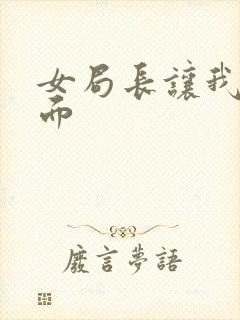 女局長讓我
而
廢言夢語